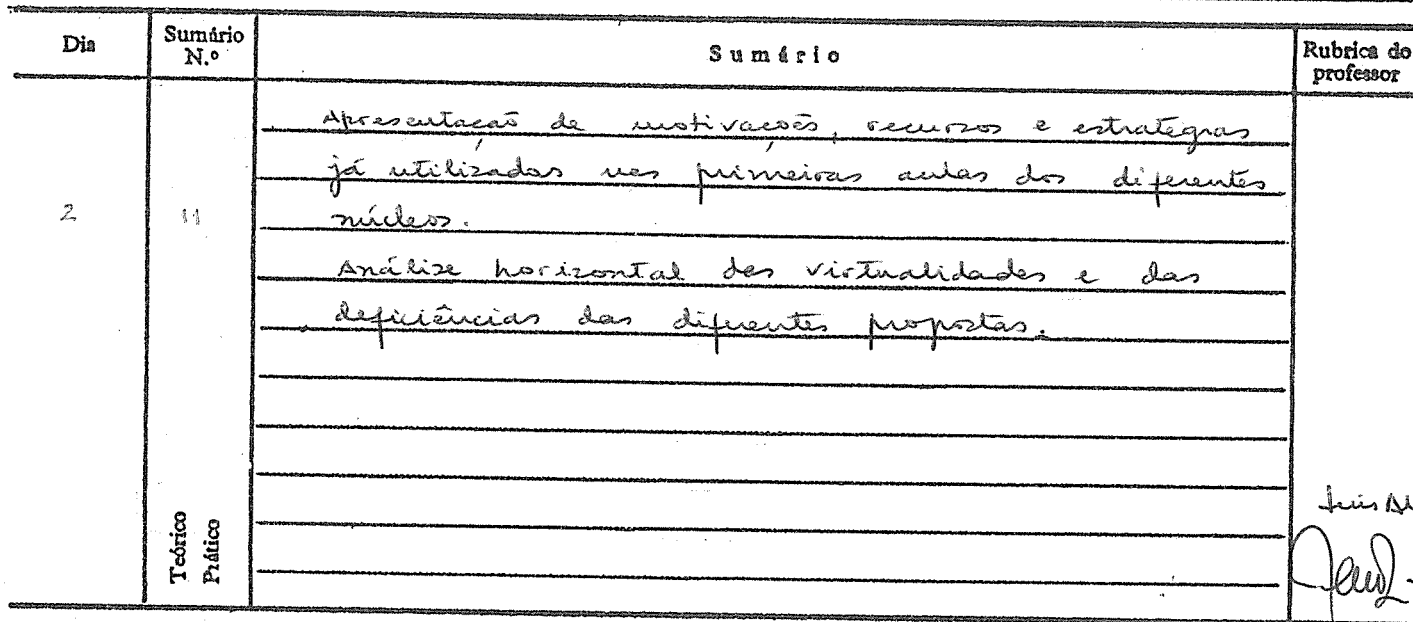 Dia
Sumário N.º
Sumário
Rubrica do professor
Apresentação de motivações, recursos e estratégias
já utilizadas nas primeiras aulas dos diferentes
2
11
núcleos.
Análise horizontal das virtualidades e das
deficiências das diferentes propostas.
Teórico
Prático
Luis Al